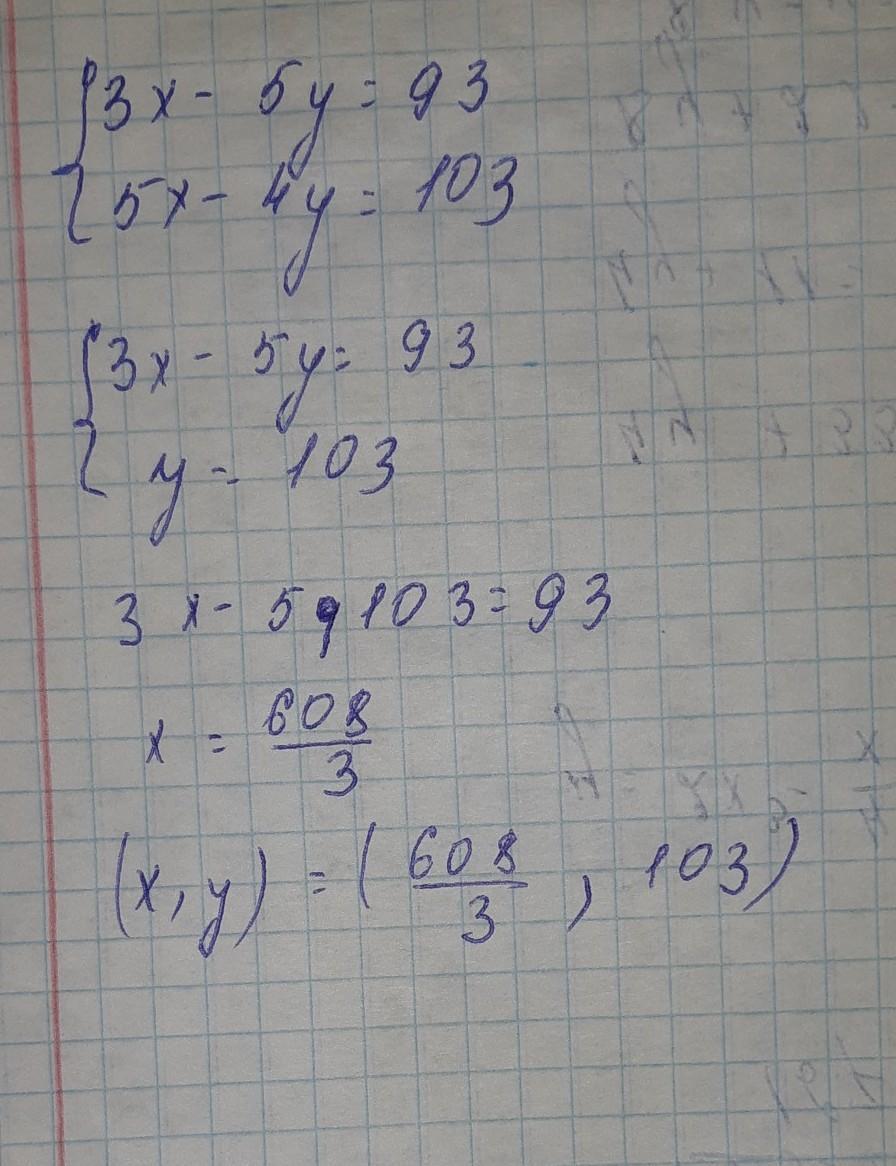 3x - 5y = 93
5x - 4y = 103
3x - 5y = 93
y = 103
3x - 5 · 103 = 93
x = 608/3
(x, y) = (608/3, 103)